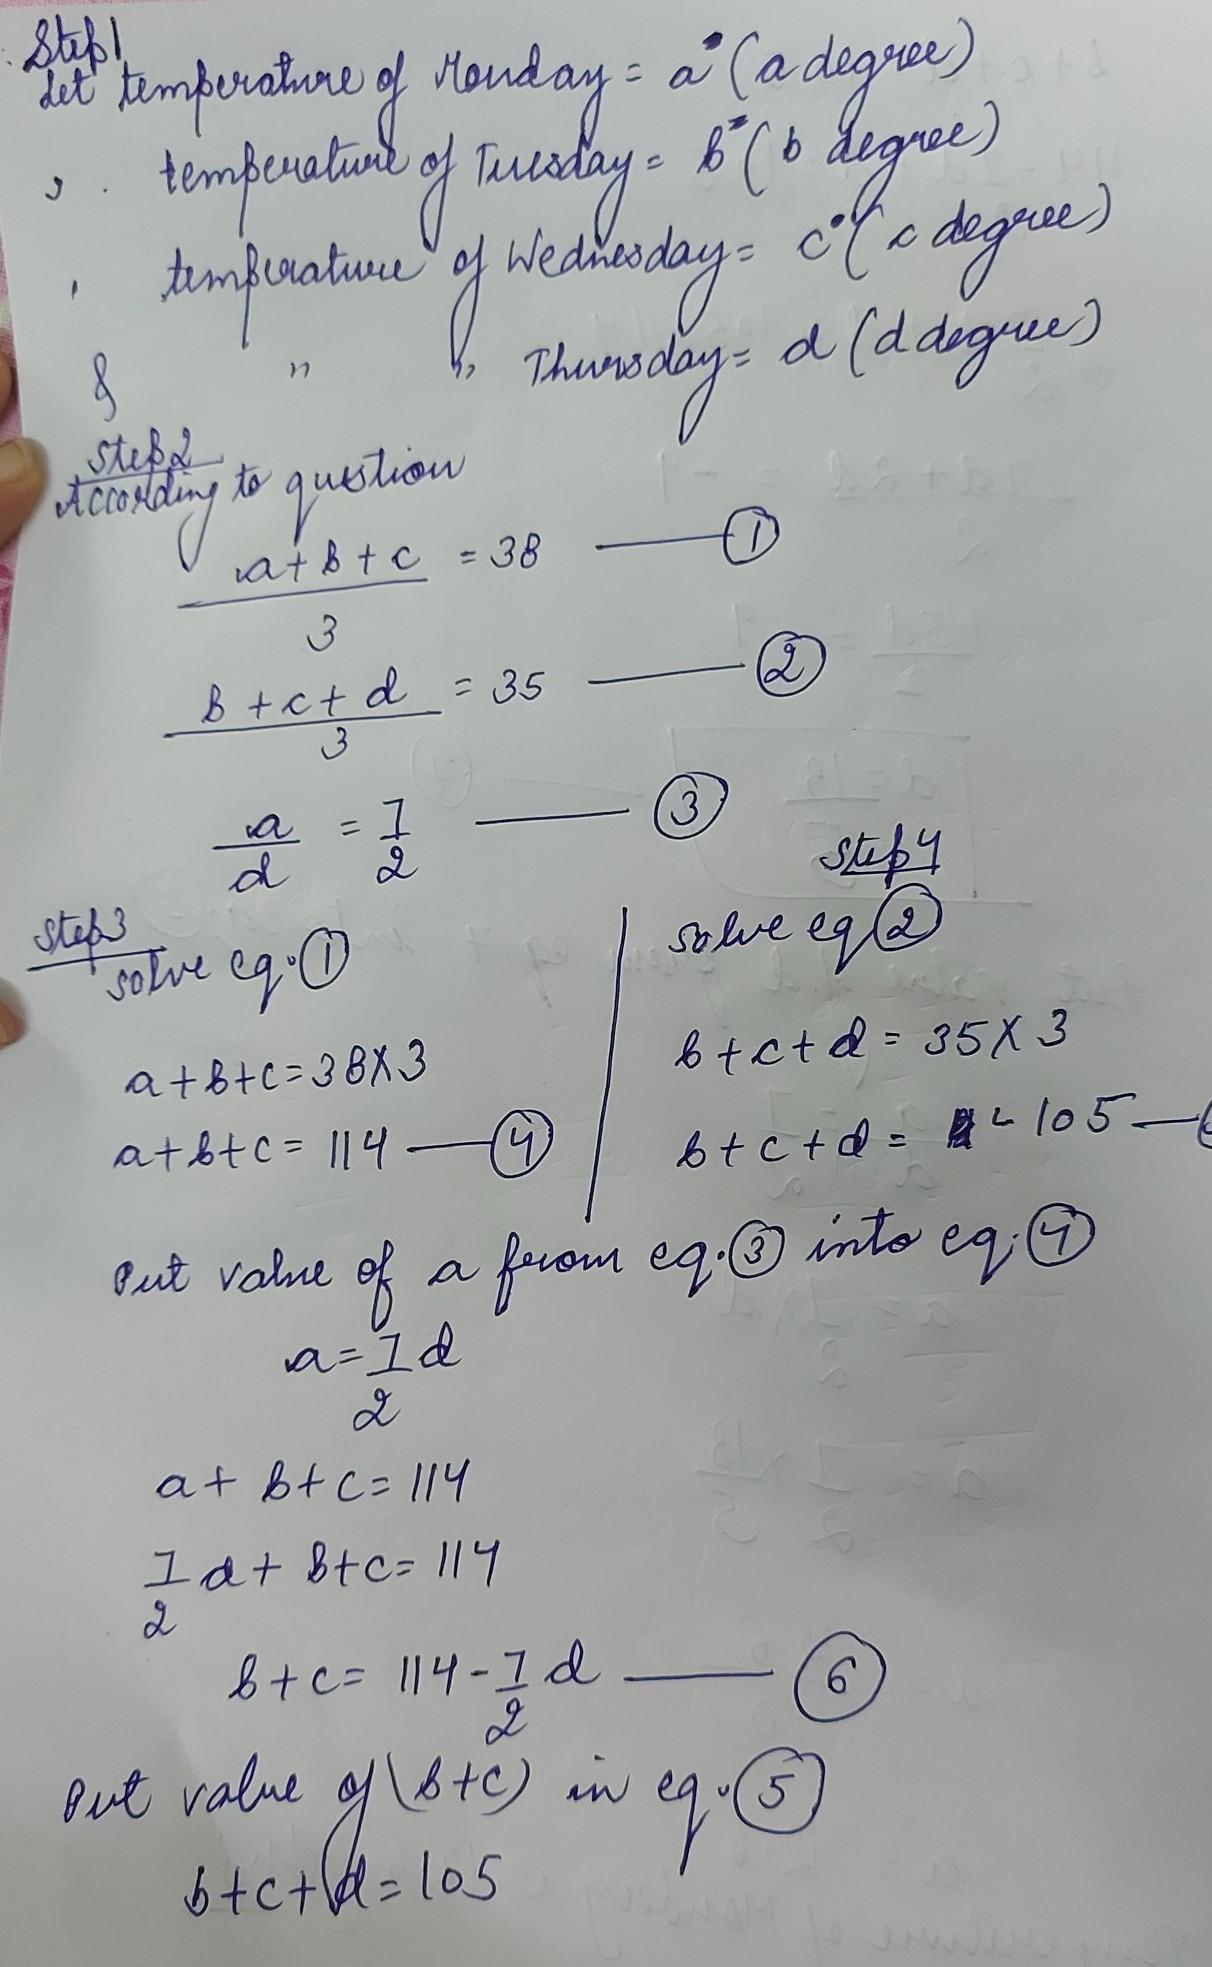 Step 1
Let temperature of Monday = a° (a degree)
, . temperature of Tuesday = b° (b degree)
, temperature of Wednesday = c° (c degree)
& " " Thursday = d (d degree)
Step 2
According to question
a+b+c = 38 —— ①
3
b+c+d = 35 —— ②
3
a = 1 —— ③
d 2
Step 3
solve eq. ①
a+b+c = 38×3
a+b+c = 114 —— ④
Step 4
solve eq ②
b+c+d = 35×3
b+c+d = 105 —
Put value of a from eq. ③ into eq. ④
a = 1 d
2
a + b+c = 114
1 d + b+c = 114
2
b+c = 114 - 1 d —— ⑥
2
Put value of (b+c) in eq. ⑤
b+c+d = 105